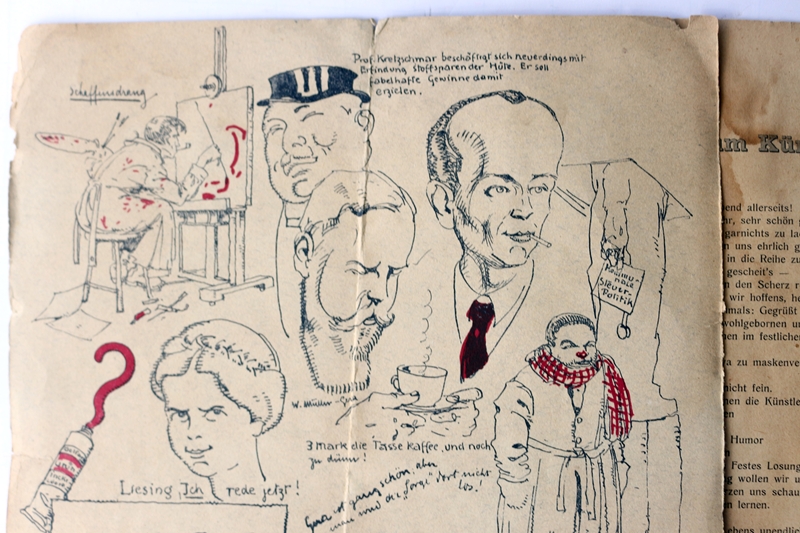 Prof. Kretzschmar beschäftigt sich neuerdings mit
Erfindung stoffsparender Hüte. Er soll
fabelhafte Gewinne damit
erzielen.
Schaffensdrang
Kommu-
nale
Steuer-
Politik
W. Müller-Gera
3 Mark die Tasse Kaffee, und noch
zu dünn!
Liesing, Ich rede jetzt!
Gera ist ganz schön aber
man wird die Sorge dort nicht
los!
um Kün
end allerseits!
hr, sehr schön
garnichts zu la
n uns ehrlich g
in die Reihe zu
gescheit's —
den Scherz
wir hoffens, he
mals: Gegrüßt
wohlgebornen un
en im festlichen
a zu maskenve
nicht fein.
nen die Künstle
en
Humor
Festes Losung
g wollen wir u
rzen uns schau
lernen.
ebens unendlic